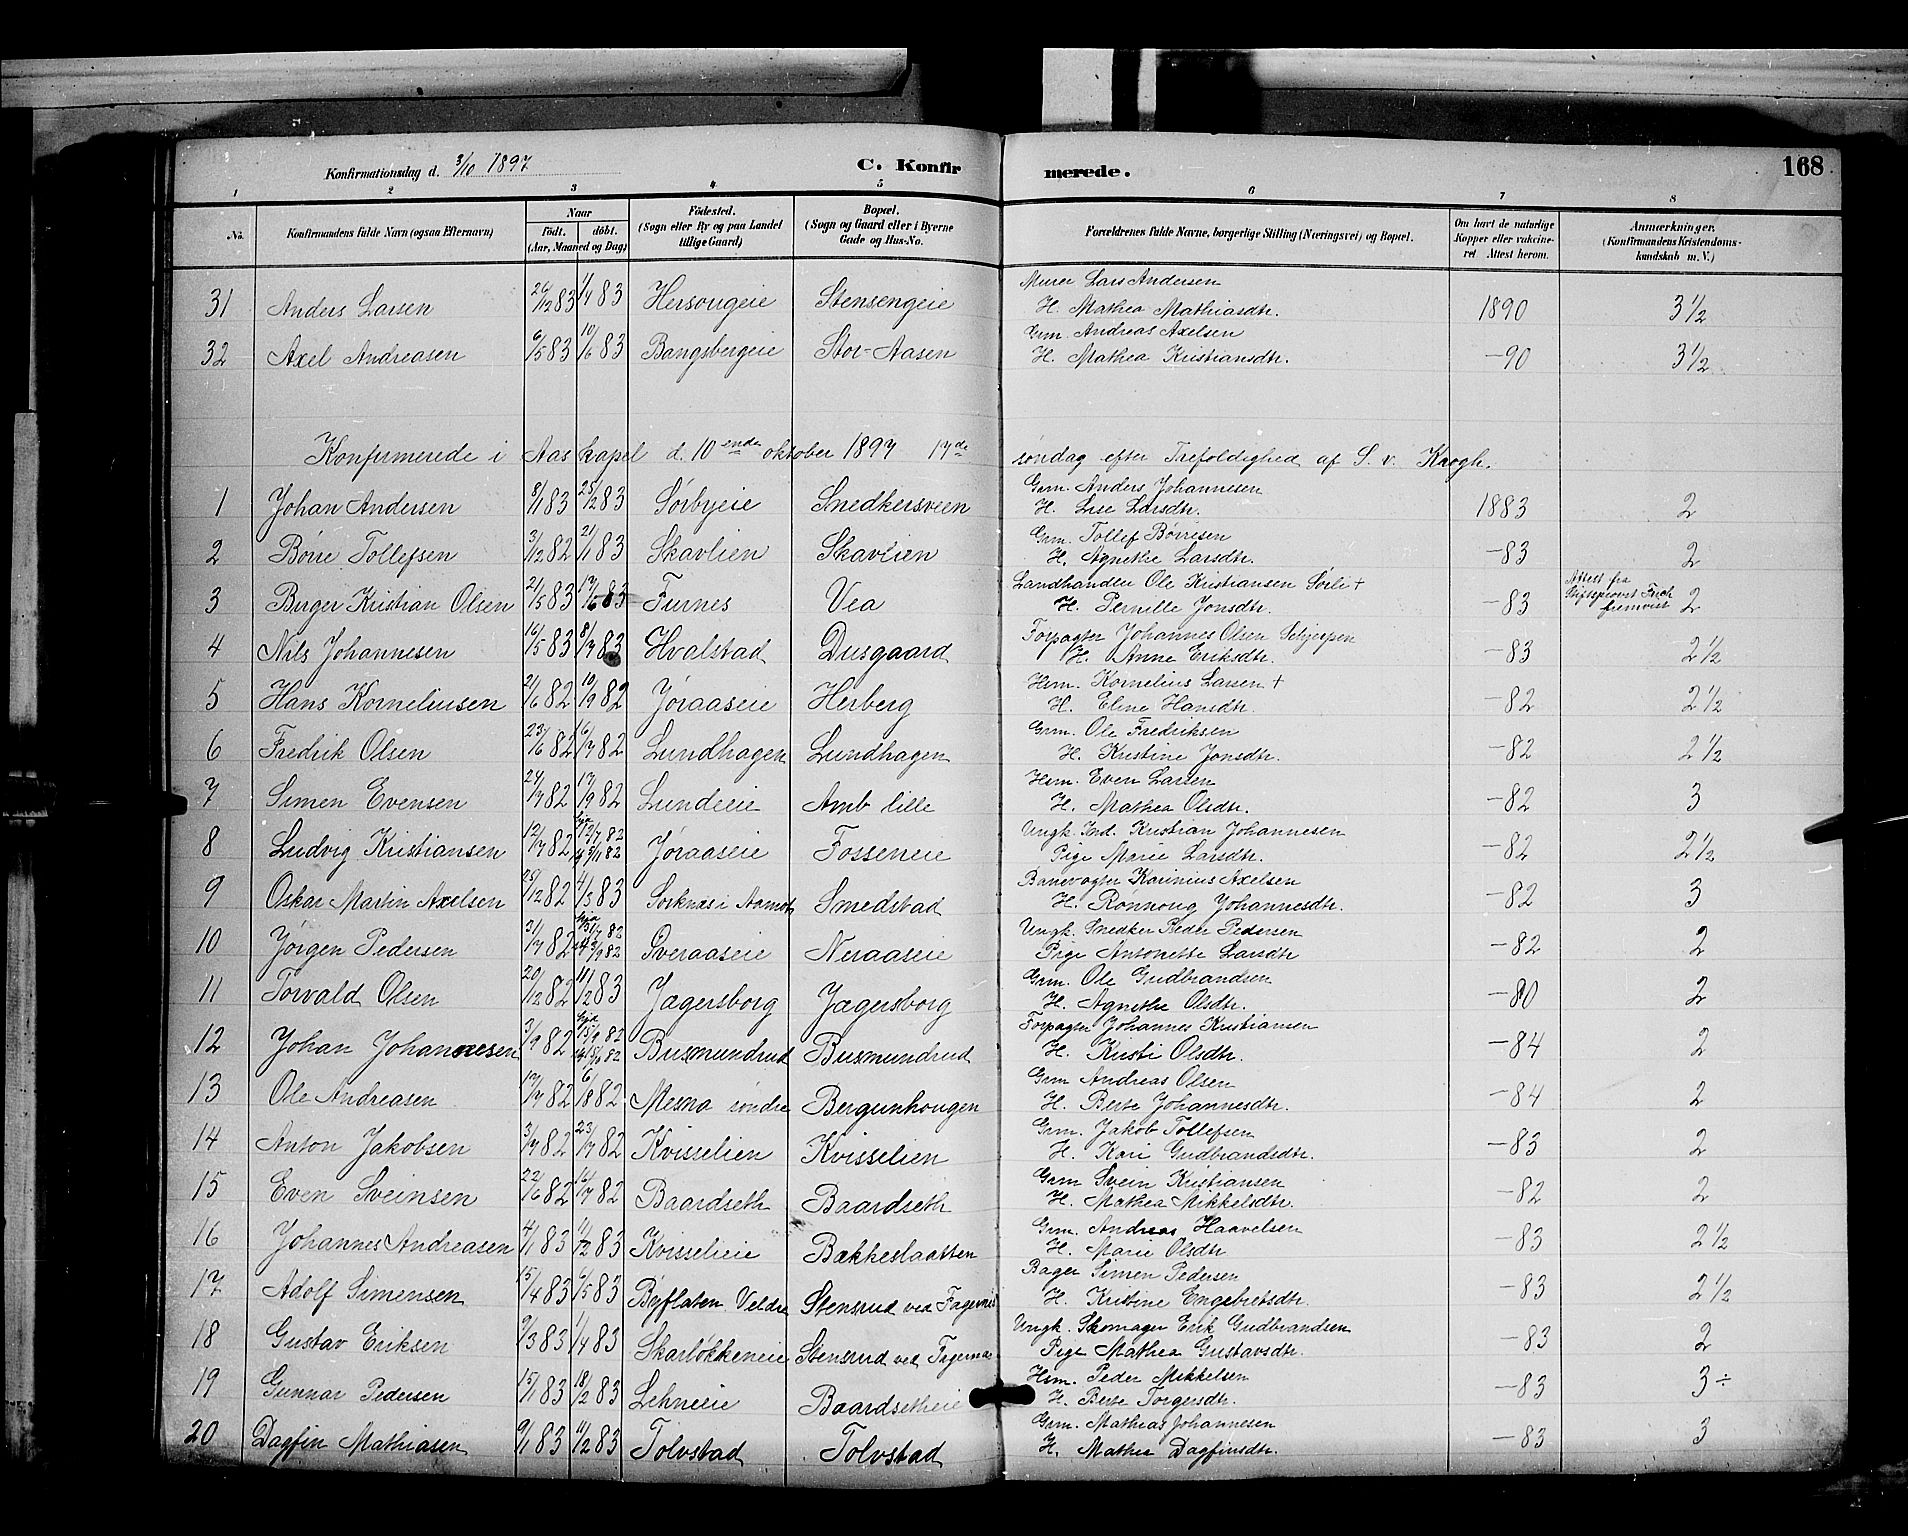 Konfirmationsdag d. 3/10 1897 C. Konfirmerede. 168
1 2 3 4 5 6 7 8
No. Konfirmandens fulde Navn (ogsaa Efternavn) Naar Födt. döbt. (Aar, Maaned og Dag) Födested. (Sogn eller By og paa Landet tillige Gaard) Bopæl. (Sogn og Gaard eller i Byerne Gade og Hus-No. Forældrenes fulde Navne, borgerlige Stilling (Næringsvei) og Bopæl. Om havt de naturlige Kopper eller vakcineret Attest herom. Anmærkninger. (Konfirmandens Kristendomskundskab m. V.)
31 Anders Larsen 83 1/4 83 Hersougeie Stensengeie Murer Lars Andersen
H. Mathea Mathiasdtr. 1890 3 1/2
32 Axel Andreasen 6/5 83 10/6 83 Bangsbergeie Stor-Aasen Grm. Andreas Axelsen
H. Mathea Kristiansdtr. -90 3 1/2
Konfirmerede i Aas kapel d. 10ende oktober 1897 17de søndag efter Trefoldighed af S. v. Krogh.
1 Johan Andersen 8/1 83 25/2 83 Sørbyeie Snedkersveen Grm. Anders Johannesen
H. Lise Larsdtr. 1883 2
2 Børre Tollefsen 3/12 82 21/1 83 Skavlien Skavlien Grm. Tollef Børresen
H. Agnethe Larsdtr. -83 2
3 Birger Kristian Olsen 21/5 83 17/6 83 Furnes Vea Landhandler Ole Kristiansen Sørli +
H. Pernille Jonsdtr. -83 Attest fra Stiftsprovst fremvist 2
4 Nils Johannesen 16/5 83 8/7 83 Hvalstad Dusgaard Forpagter Johannes Olsen Schjerpen
H. Anne Eriksdtr. -83 2 1/2
5 Hans Korneliusen 21/6 82 10/9 82 Jøraaseie Herberg Hsm. Kornelius Larsen +
H. Eline Hansdtr. -82 2 1/2
6 Fredrik Olsen 23/6 82 16/7 82 Lundhagen Lundhagen Grm. Ole Fredriksen
H. Kristine Jonsdtr. -82 2 1/2
7 Simen Evensen 24/7 82 17/9 82 Lundeeie Amb lille Hsm. Even Larsen
H. Mathea Olsdtr. -82 3
8 Ludvig Kristiansen 12/7 82 hjd 12/7 82 5/11 82 Jøraaseie Fosseneie Ungk. Ind. Kristian Johannesen
Pige Marie Larsdtr. -82 2 1/2
9 Oskar Martin Axelsen 25/12 82 4/3 83 Sorknæs i Aamot Smedstad Banevogter Karinius Axelsen
H. Rønnoug Johannesdtr. -82 3
10 Jørgen Pedersen 31/7 82 hjd 31/7 82 3/9 82 Sveraaseie Neraaseie Ungk. Snedker Peder Pedersen
Pige Antonette Larsdtr -82 2
11 Torvald Olsen 20/12 82 11/2 83 Jægersborg Jægersborg Grm. Ole Gudbrandsen
H. Agnethe Olsdtr. 2
12 Johan Johannesen 3/9 82 hjd 15/9 82 Busmundrud Busmundrud Forpagter Johannes Kristiansen
H. Kristi Olsdtr. -84 2
13 Ole Andreasen 17/7 82 6/8 82 Mesna søndre Bergunhougen Grm Andreas Olsen
H. Berte Johannesdtr. -84 2
14 Anton Jakobsen 3/7 82 23/7 82 Kvisselien Kvisselien Grm. Jakob Tollefsen
H. Kari Gudbrandsdtr. -83 2
15 Even Sveinsen 22/6 82 16/7 82 Baardseth Baardseth Grm Svein Kristiansen
H. Mathea Mikkelsdtr. -82 2
16 Johannes Andreasen 4/1 83 11/2 83 Kvisselieie Bakkeslaatten Grm. Andreas Haavelsen
H. Marie Olsdtr -83 2 1/2
17 Adolf Simensen 15/4 83 6/5 83 Bøjflaten Veldre Stensrud ved Fagernæs Bager Simen Pedersen
H. Kristine Engebretsdtr. -83 2 1/2
18 Gustav Eriksen 9/3 83 1/4 83 Skarløkkeneie Stensrud ved Fagernæs Ungk. Skomager Erik Gudbrandsen
Pige Mathea Gustavsdtr. -83 2
19 Gunnar Pedersen 15/1 83 18/2 83 Lehneeie Baardsetheie Hsm. Peder Mikkelsen
H. Berte Torgersdtr. -83 3÷
20 Dagfin Mathiasen 9/1 83 11/2 83 Tolvstad Tolvstad Grm. Mathias Johannesen
H. Mathea Dagfinsdtr. -83 3